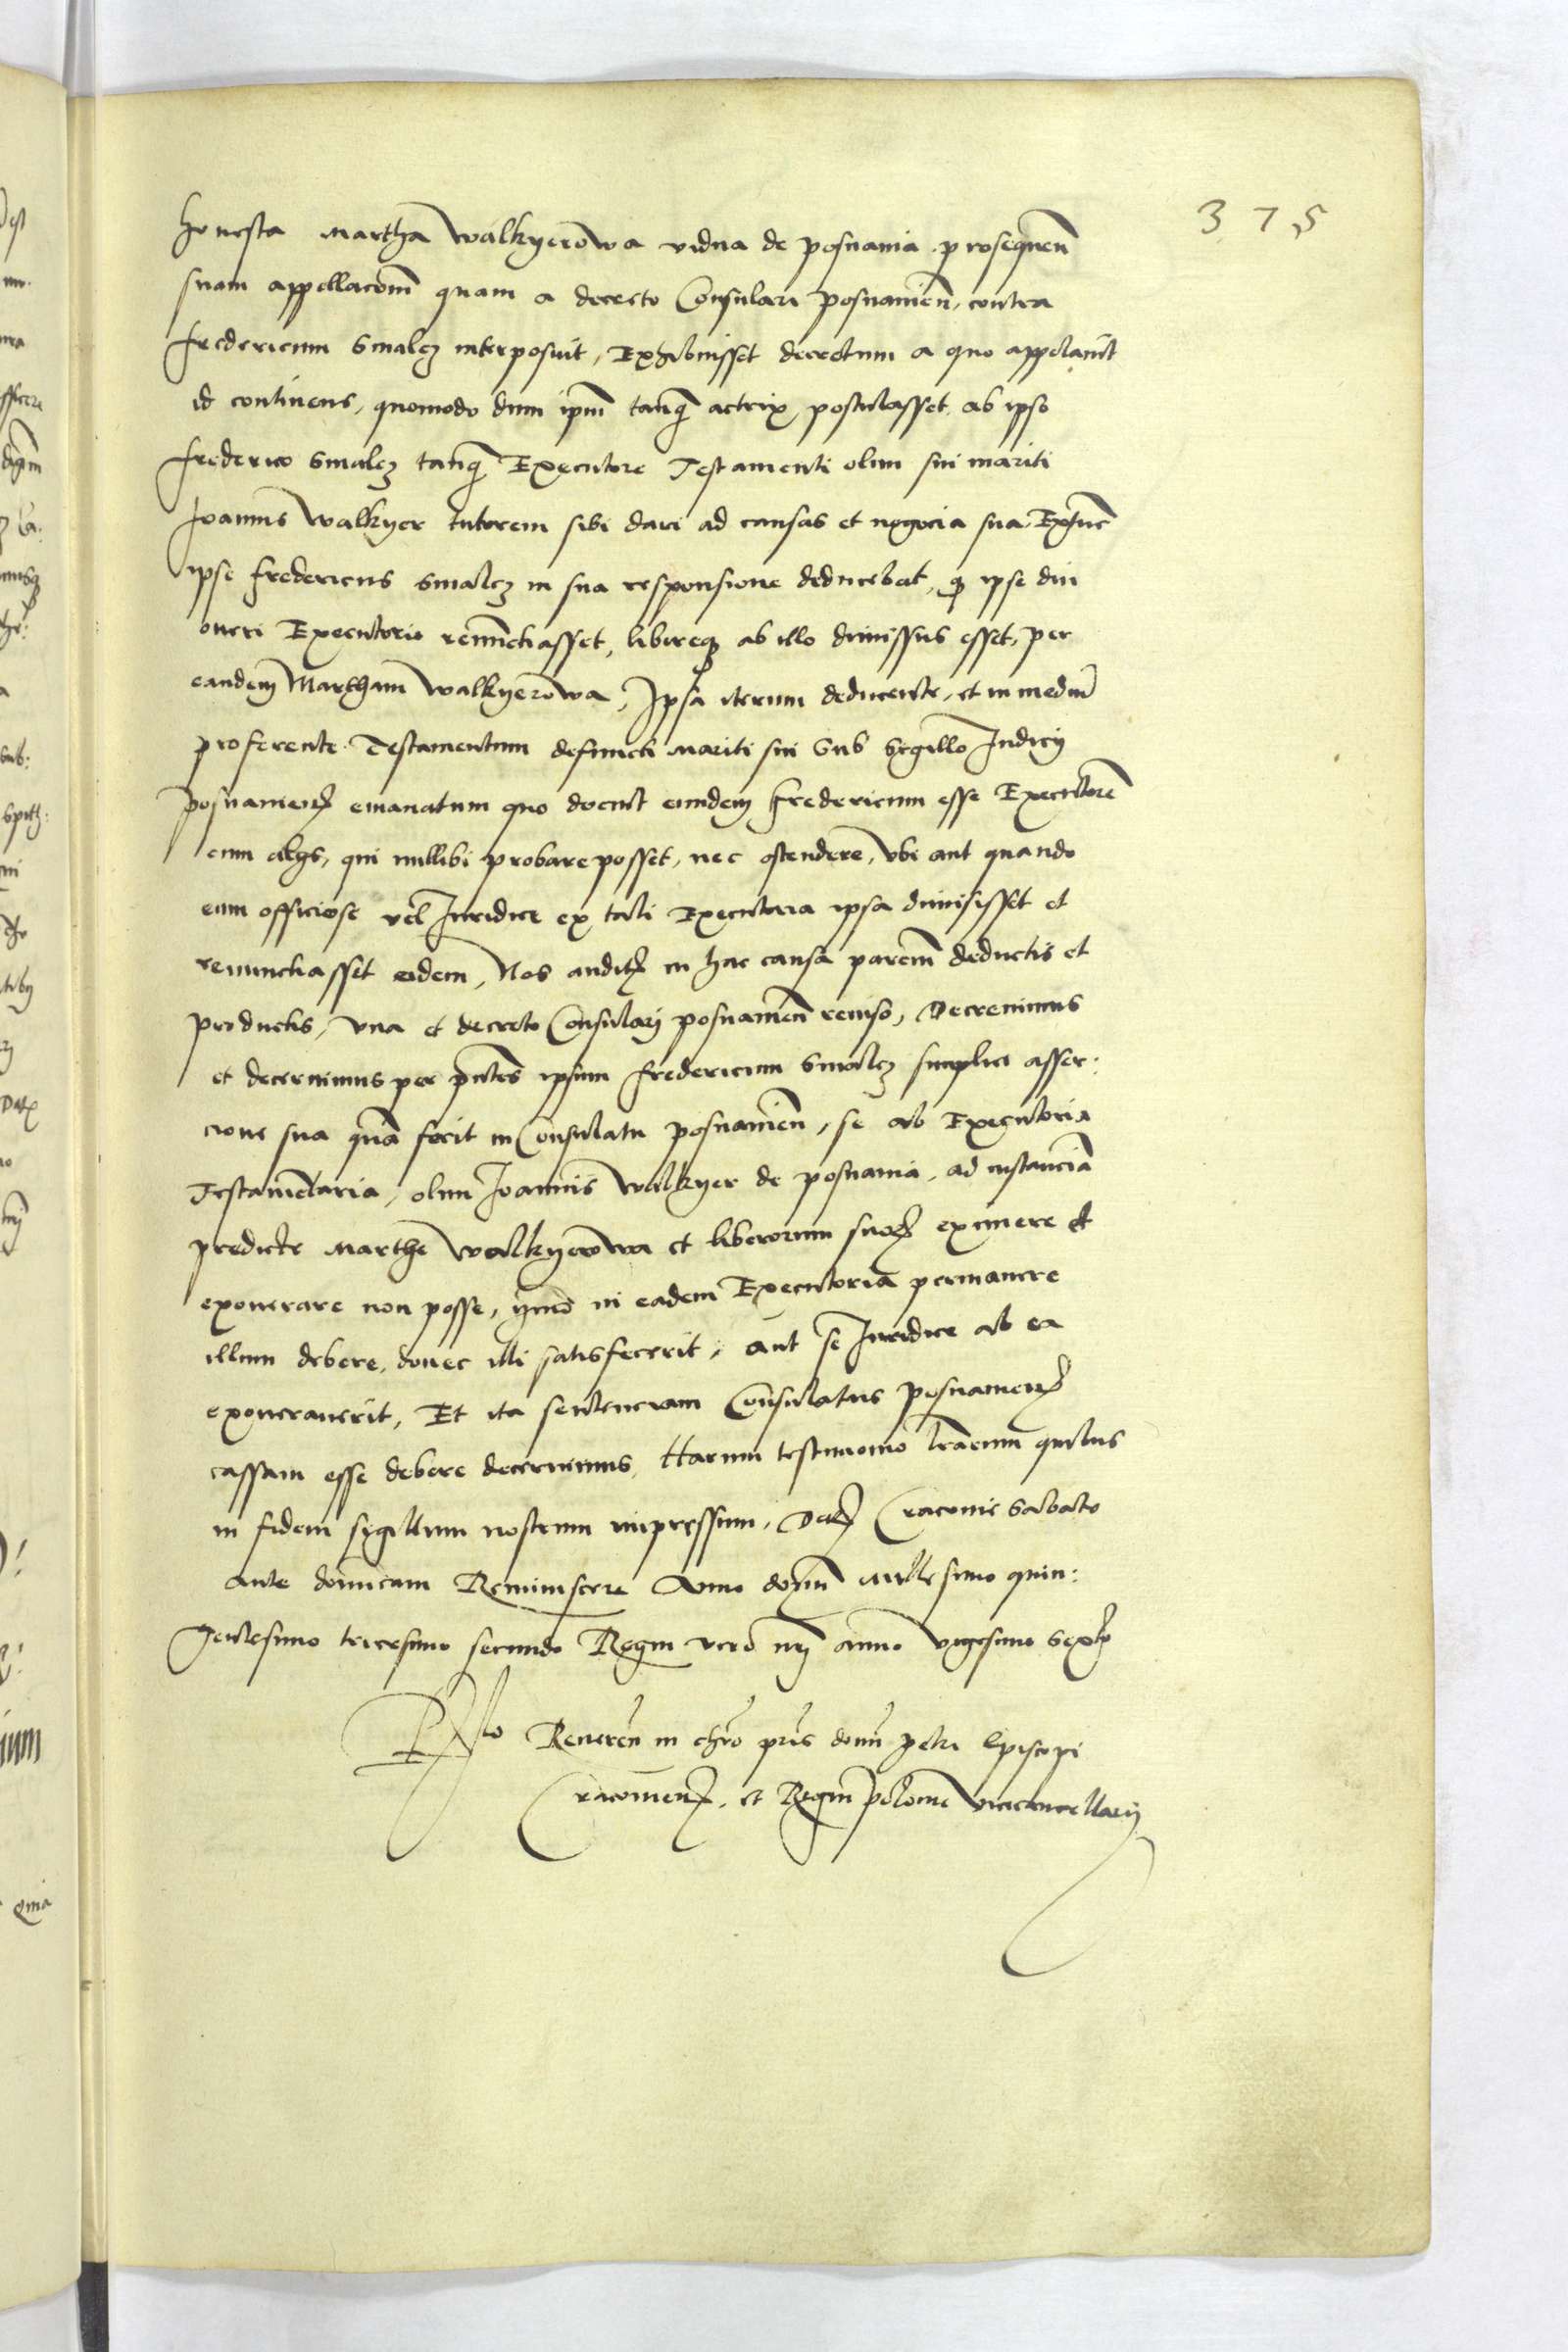 375
honesta Martha Walkyerowa vidua de posnania prosequen̄
suam appellacōm quam a decreto Consulari posnanien̄, contra
fredericum Smalcz interposuit, Exhibuisset decretum a quo appelauit
id continens, quomodo dum ipm̄ tanq̄ actrix postulasset ab ipso
frederico Smalcz tanq̄ Executore Testamenti olim sui mariti
Joannis Walkyer tutorem sibi dari ad causas et negocia sua Extunc
ipse fredericus Smalcz in sua responsione deducebat, q̨ ipse diu
oneri Executorio renūctiasset, libereq̨ ab illo dimissus esset, per
eandem Martham Walkyerowa, Ipsa iterum deducente, et in mediū
proferente Testamentum defuncti Mariti sui Sub Sigillo Judicij
posnanien̄ emanatum quo docuit eundem fredericum esse Executorē
cum alijs, qui nullibi probare posset, nec ostendere, vbi aut quando
eum officiose vel Juridice ex tali Executoria ipsa dimisisset et
renunctiasset eidem, Nos auditꝭ in hac causa parcm̄ deductis et
productis, vna et decreto Consulari posnanien̄ reuiso, Decreuimus
et decernimus per p̄ntes ipsum fredericum Smalcz simplici asser:
cione sua quā fecit in Consulatu posnanien̄, se ab Executoria
Testamentaria, olim Joannis Walkyer de posnania, ad instanciā
predicte Marthe Walkyerowa et liberorum suoꝝ eximere et
exonerare non posse, ymo in eadem Executoria permanere
illum debere, donec illi satisfecerit, aut se Juridice ab ea
exonerauerit, Et ita sentenciam Consulatus posnanien̄
cassam esse debere decernimus, Harum testimonio lrārum quibus
in fidem sygillum nostrum impressum, Datꝭ Cracouie Sabato
ante domīcam Reminiscere Anno domī Millesimo quin:
gentesimo tricesimo secundo Regni vero nrj̄ anno vigesimo Sexto
Rlo Reueren̄ in chrō pr̄is domī petri Episcopi
Cracouien̄, et Regni polonie vicecancellarij